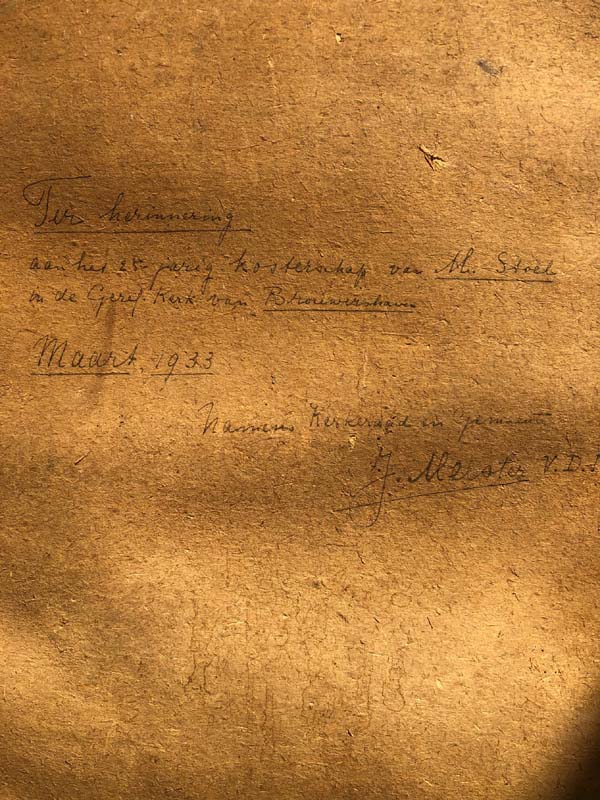 Ter herinnering
aan het 25 jarig kosterschap van M. Stoel
in de Geref. Kerk van Brouwershaven
Maart 1933
Namens Kerkeraad en gemeente
J. Meester V.D.